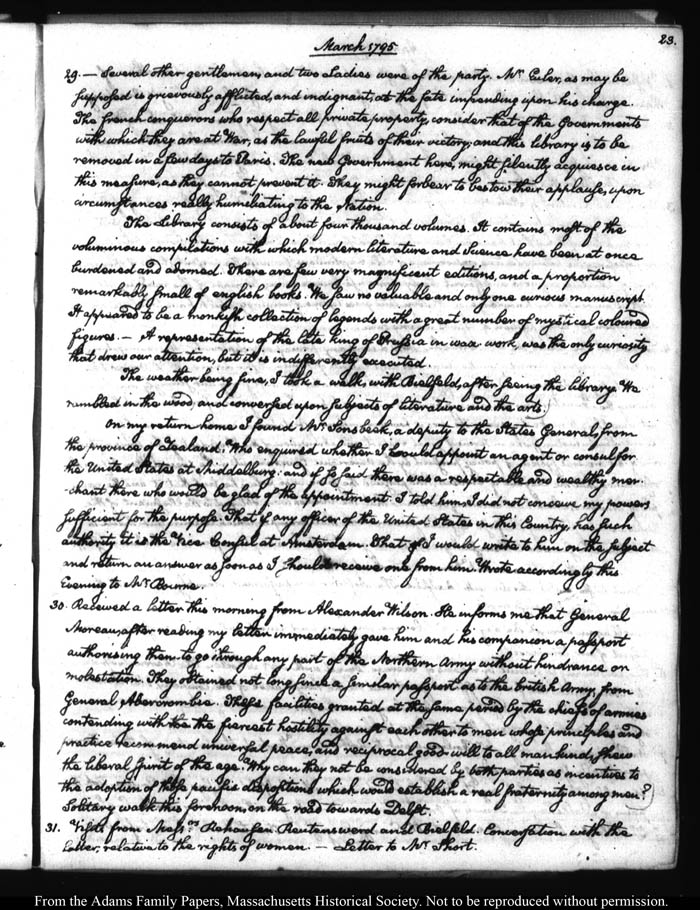 23.
March 1795
29. — Several other gentlemen, and two Ladies were of the party. Mr. Euler, as may be
supposed is grievously afflicted, and indignant, at the fate impending upon his charge.
The french conquerors who respect all private property, consider that of the Governments
with which they are at War, as the lawful fruits of their victory; and this library is to be
removed in a few days to Paris. The new Government here, might silently acquiesce in
this measure, as they cannot prevent it. They might forbear to bestow their applause, upon
circumstances really humiliating to the Nation.
The Library consists of about four thousand volumes. It contains most of the
voluminous compilations with which modern literature and Science have been at once
burdened and adorned. There are few very magnificent editions, and a proportion
remarkably small of english books. We saw no valuable and only one curious manuscript.
It appeared to be a monkish collection of legends with a great number of mystical coloured
figures. — A representation of the late king of Prussia in wax work, was the only curiosity
that drew our attention, but it is indifferently executed.
The weather being fine, I took a walk, with Bielfeld, after seeing the library. We
rambled in the wood, and conversed upon subjects of literature and the arts.
On my return home I found Mr. Sonsbeek, a deputy to the States General, from
the province of Zealand. Who enquired whether I could appoint an agent or consul for
the United States at Middelburg: and if so said there was a respectable and wealthy mer-
-chant there who would be glad of the appointment. I told him, I did not conceive my powers
sufficient for the purpose. That if any officer of the United States in this Country, has such
authority it is the Vice Consul at Amsterdam. That I would write to him on the subject
and return an answer as soon as I should receive one from him. Wrote accordingly this
Evening to Mr. Bourne.
30. Received a letter this morning from Alexander Wilson. He informs me that General
Moreau, after reading my letter immediately gave him and his companion a passport
authorising them to go through any part of the Northern Army without hindrance or
molestation. They obtained not long since a similar passport as to the british Army, from
General Abercrombie. These facilities granted at the same period by the chiefs of armies
contending with the fiercest hostility against each other to men whose principles and
practice recommend universal peace, and reciprocal good-will to all mankind, shew
the liberal spirit of the age. Why can they not be considered by both parties as incentives to
the adoption of those pacific dispositions which would establish a real fraternity among men?
Solitary walk this forenoon, on the road towards Delft.
31. Visits from Messrs. Rehausen Reuterswerd and Bielfeld. Conversation with the
latter, relative to the rights of women. — Letter to Mr. Short.
From the Adams Family Papers, Massachusetts Historical Society. Not to be reproduced without permission.